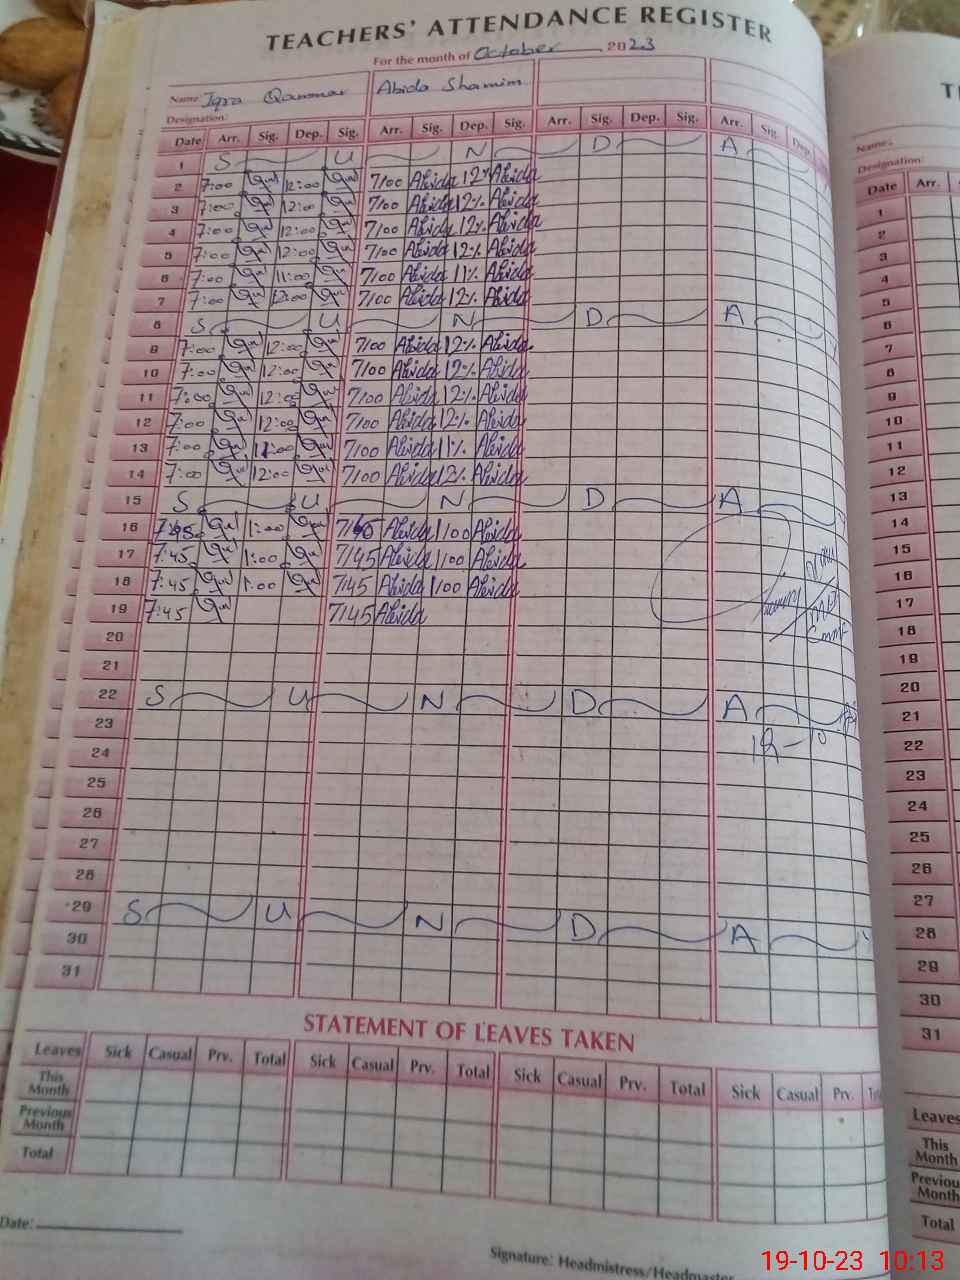 TEACHERS' ATTENDANCE REGISTER
For the month of October 2023
Name Iqra Qammar Abida Shamim
Designation:
Date Arr. Sig. Dep. Sig. Arr. Sig. Dep. Sig. Arr. Sig. Dep. Sig. Arr. Sig. Dep.
1 S U N D A
2 7:00 12:00 7/00 Abida 12/. Abida
3 7:00 12:00 7/00 Abida 12/. Abida
4 7:00 12:00 7/00 Abida 12/. Abida
5 7:00 12:00 7/00 Abida 12/. Abida
6 7:00 11:00 7/00 Abida 11/. Abida
7 7:00 12:00 7/00 Abida 12/. Abida
8 S U N D A Y
9 7:00 12:00 7/00 Abida 12/. Abida
10 7:00 12:00 7/00 Abida 12/. Abida
11 7:00 12:00 7/00 Abida 12/. Abida
12 7:00 12:00 7/00 Abida 12/. Abida
13 7:00 11:00 7/00 Abida 11/. Abida
14 7:00 12:00 7/00 Abida 12/. Abida
15 S U N D A Y
16 7:45 1:00 Abida 1/00 Abida
17 7:45 1:00 7/45 Abida 1/00 Abida
18 7:45 1:00 7/45 Abida 1/00 Abida
19 7:45 7/45 Abida
20
21
22 S U N D A
23 19-10
24
25
26
27
28
29 S U N D A Y
30
31
STATEMENT OF LEAVES TAKEN
Leaves Sick Casual Prv. Total Sick Casual Prv. Total Sick Casual Prv. Total Sick Casual Prv.
This Month
Previous Month
Total
Date:
Signature: Headmistress/Headmaster
Name:
Designation:
Date Arr.
1
2
3
4
5
6
7
8
9
10
11
12
13
14
15
16
17
18
19
20
21
22
23
24
25
26
27
28
29
30
31
Leaves
This Month
Month
Total
19-10-23 10:13